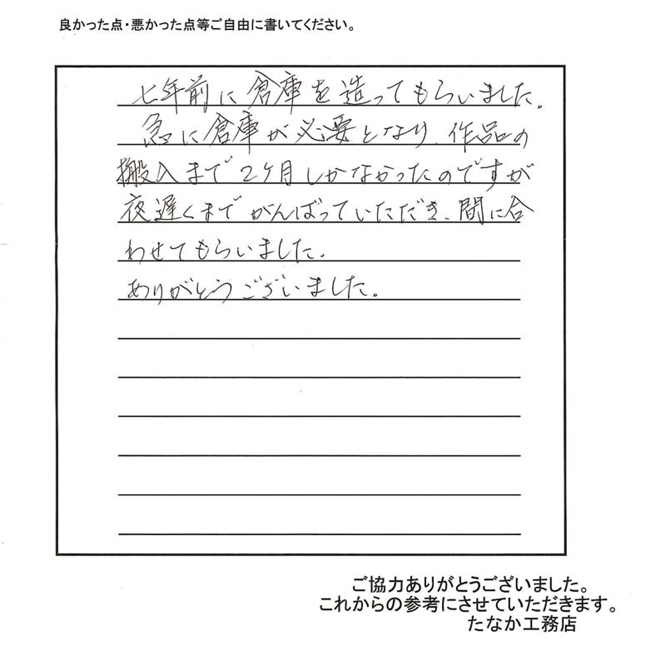 良かった点・悪かった点等ご自由に書いてください。
七年前に倉庫を造ってもらいました。
急に倉庫が必要となり、作品の
搬入まで2ケ月しかなかったのですが
夜遅くまでがんばっていただき、間に合
わせてもらいました。
ありがとうございました。
ご協力ありがとうございました。
これからの参考にさせていただきます。
たなか工務店